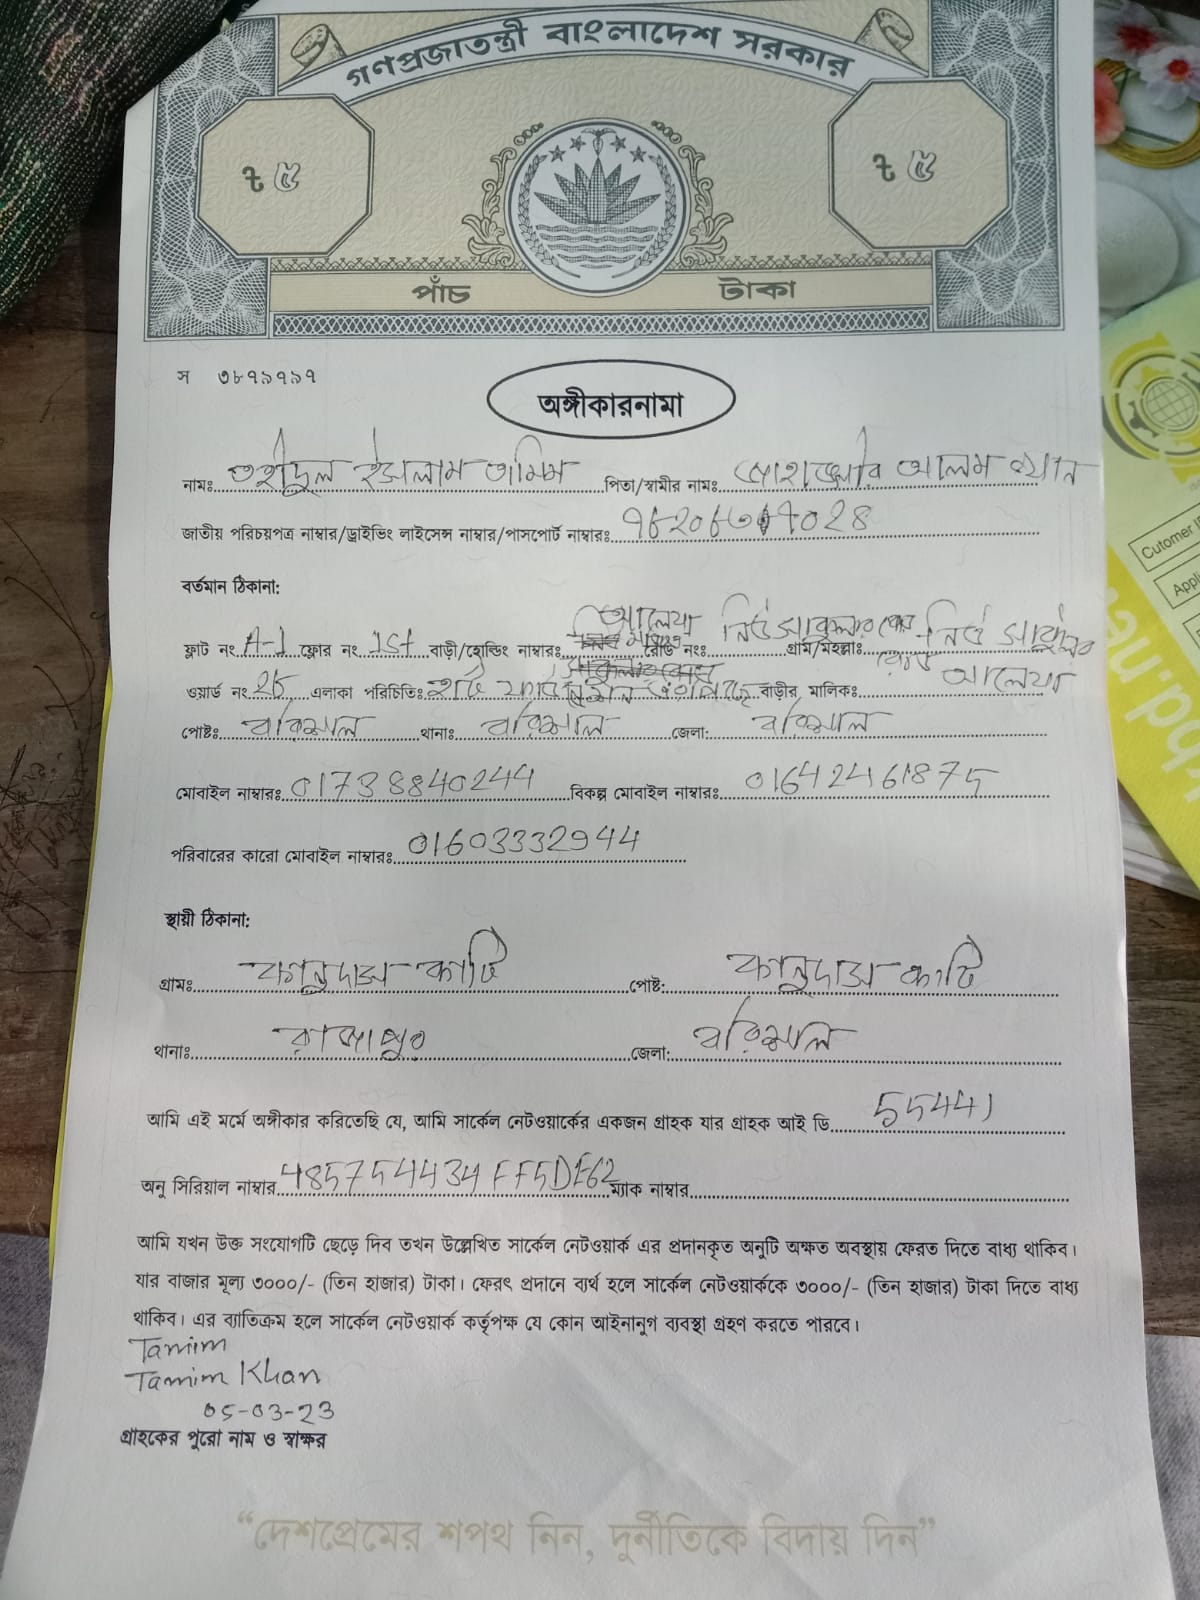 গণপ্রজাতন্ত্রী বাংলাদেশ সরকার
৳ ৫ ৳ ৫
পাঁচ টাকা
স ৩৮৭৯৭৯৭
অঙ্গীকারনামা
নামঃ তহীদুল ইসলাম তামিম পিতা/স্বামীর নামঃ আলম
জাতীয় পরিচয়পত্র নাম্বার/ড্রাইভিং লাইসেন্স নাম্বার/পাসপোর্ট নাম্বারঃ
বর্তমান ঠিকানা:
ফ্লাট নং A-1 ফ্লোর নং 1st বাড়ী/হোল্ডিং নাম্বারঃ আলেয়া রোড নংঃ নিউ গ্রাম/মহল্লাঃ নিউ
ওয়ার্ড নং এলাকা পরিচিতিঃ বাড়ীর মালিকঃ আলেয়া
পোষ্টঃ বরিশাল থানাঃ বরিশাল জেলা: বরিশাল
মোবাইল নাম্বারঃ 01738840244 বিকল্প মোবাইল নাম্বারঃ 01642461875
পরিবারের কারো মোবাইল নাম্বারঃ 01603332944
স্থায়ী ঠিকানা:
গ্রামঃ কানুদাস কাঠি পোষ্ট: কানুদাস কাঠি
থানাঃ রাজাপুর জেলা: বরিশাল
আমি এই মর্মে অঙ্গীকার করিতেছি যে, আমি সার্কেল নেটওয়ার্কের একজন গ্রাহক যার গ্রাহক আই ডি 55441
অনু সিরিয়াল নাম্বার 485754434FF5DE62 ম্যাক নাম্বার
আমি যখন উক্ত সংযোগটি ছেড়ে দিব তখন উল্লেখিত সার্কেল নেটওয়ার্ক এর প্রদানকৃত অনুটি অক্ষত অবস্থায় ফেরত দিতে বাধ্য থাকিব।
যার বাজার মূল্য ৩০০০/- (তিন হাজার) টাকা। ফেরৎ প্রদানে ব্যর্থ হলে সার্কেল নেটওয়ার্ককে ৩০০০/- (তিন হাজার) টাকা দিতে বাধ্য
থাকিব। এর ব্যাতিক্রম হলে সার্কেল নেটওয়ার্ক কর্তৃপক্ষ যে কোন আইনানুগ ব্যবস্থা গ্রহণ করতে পারবে।
Tamim
Tamim Khan
05-03-23
গ্রাহকের পুরো নাম ও স্বাক্ষর
“দেশপ্রেমের শপথ নিন, দুর্নীতিকে বিদায় দিন”
Cutomer
Appli
bd.ne